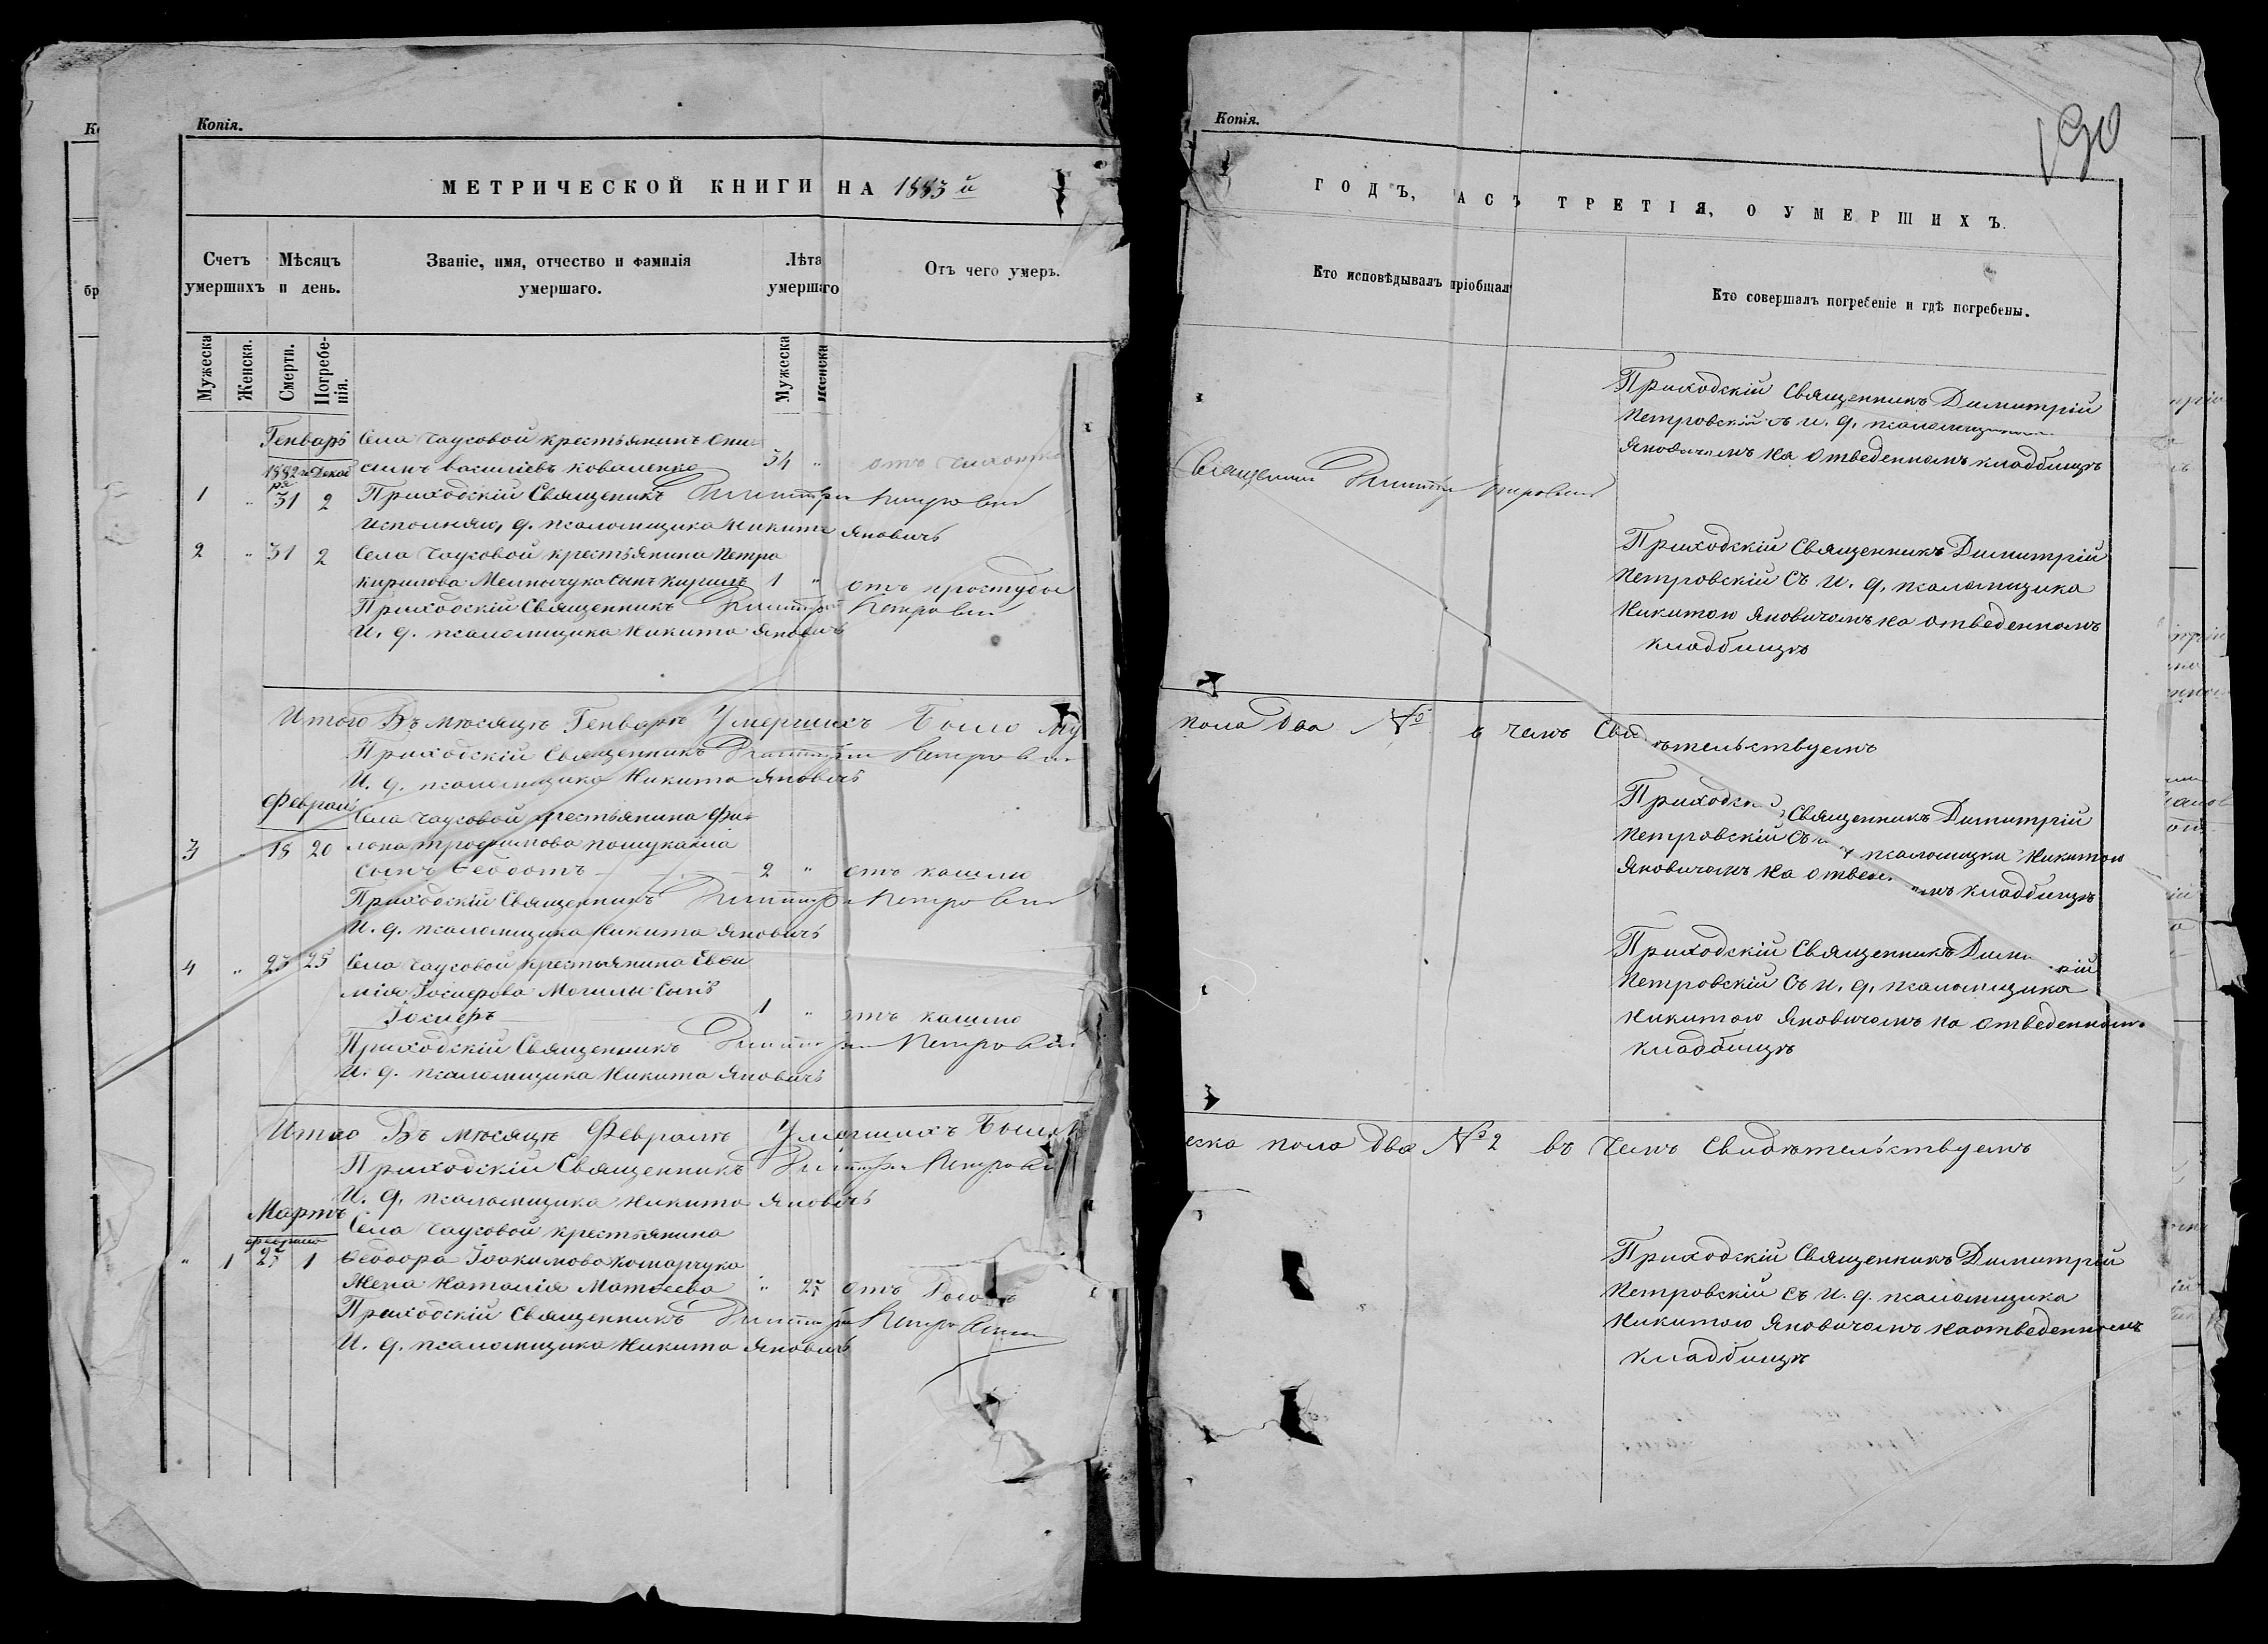 Копія.
МЕТРИЧЕСКОЙ КНИГИ НА 1883 й
Счетъ умершихъ
Мѣсяцъ и день.
Званіе, имя, отчество и фамилія умершаго.
Лѣта умершаго
Отъ чего умеръ.
Мужеска
Женска.
Смерти.
Погребенія.
Мужеска
Женска
Генварь Села Чаусовой крестьянинъ Они-
1882 го Декаб симъ Василіевъ Коваленко 34 " отъ чахотки
ря
1 " 31 2 Приходскій Священикъ Димитрій Петровскій
Исполняю, д. псаломщика Никита Яновичъ
2 " 31 2 Села Чаусовой крестьянина Петра
Кирилова Мельничука сынъ Кирилъ 1 " отъ простуды
Приходскій Священникъ Димитрій Петровскій
И. д. псаломщика Никита Яновичъ
Итого Въ мѣсяцѣ Генварѣ Умершихъ Было Му
Приходскій Священникъ Димитрій Петровскій
И. д. псаломщика Никита Яновичъ
Февраль
Села Чаусовой крестьянина Фи-
3 " 18 20 липа Трофимова
сынъ Ѳеодотъ 2 " отъ кашлю
Приходскій Священникъ Димитрій Петровскій
И. д. псаломщика Никита Яновичъ
4 " 23 25 Села Чаусовой крестьянина Евѳи
мія Іосифова Могилы сынъ
Іосифъ 1 " отъ кашлю
Приходскій Священникъ Димитрій Петровскій
И. д. псаломщика Никита Яновичъ
Итого Въ мѣсяцѣ Февралѣ Умершихъ Было
Приходскій Священникъ Димитрій Петровскій
И. д. псаломщика Никита Яновичъ
Мартъ
Села Чаусовой крестьянина
Февраля
" 1 27 1 Ѳеодора Іоакимова Комарчука
жена Наталія Матѳеева " 25 отъ Родовъ
Приходскій Священникъ Димитрій Петровскій
И. д. псаломщика Никита Яновичъ
Копія.
190
ГОДЪ, АСЪ ТРЕТІЯ, О УМЕРШИХЪ.
Кто исповѣдывалъ пріобщал
Кто совершалъ погребеніе и гдѣ погребены.
Приходскій Священникъ Димитрій
Петровскій съ и. д. псаломщика
Яновичемъ на отведенномъ кладбищѣ
Священникъ Димитрій Петровскій
Приходскій Священникъ Димитрій
Петровскій Съ И. д. псаломщика
Никитою Яновичемъ на отведенномъ
кладбищѣ
пола Два № в чемъ Свидѣтельствуемъ
Приходск Священникъ Димитрій
Петровскій Съ псаломщика Никитою
Яновичемъ на отведе мъ кладбищѣ
Приходскій Священникъ Дими рій
Петровскій Съ И. д. псаломщика
Никитою Яновичемъ на отведенномъ
кладбищѣ
еска пола два № 2 въ чемъ Свидѣтельствуемъ
Приходскій Священникъ Димитрій
Петровскій Съ И. д. псаломщика
Никитою Яновичемъ на отведенномъ
кладбищѣ